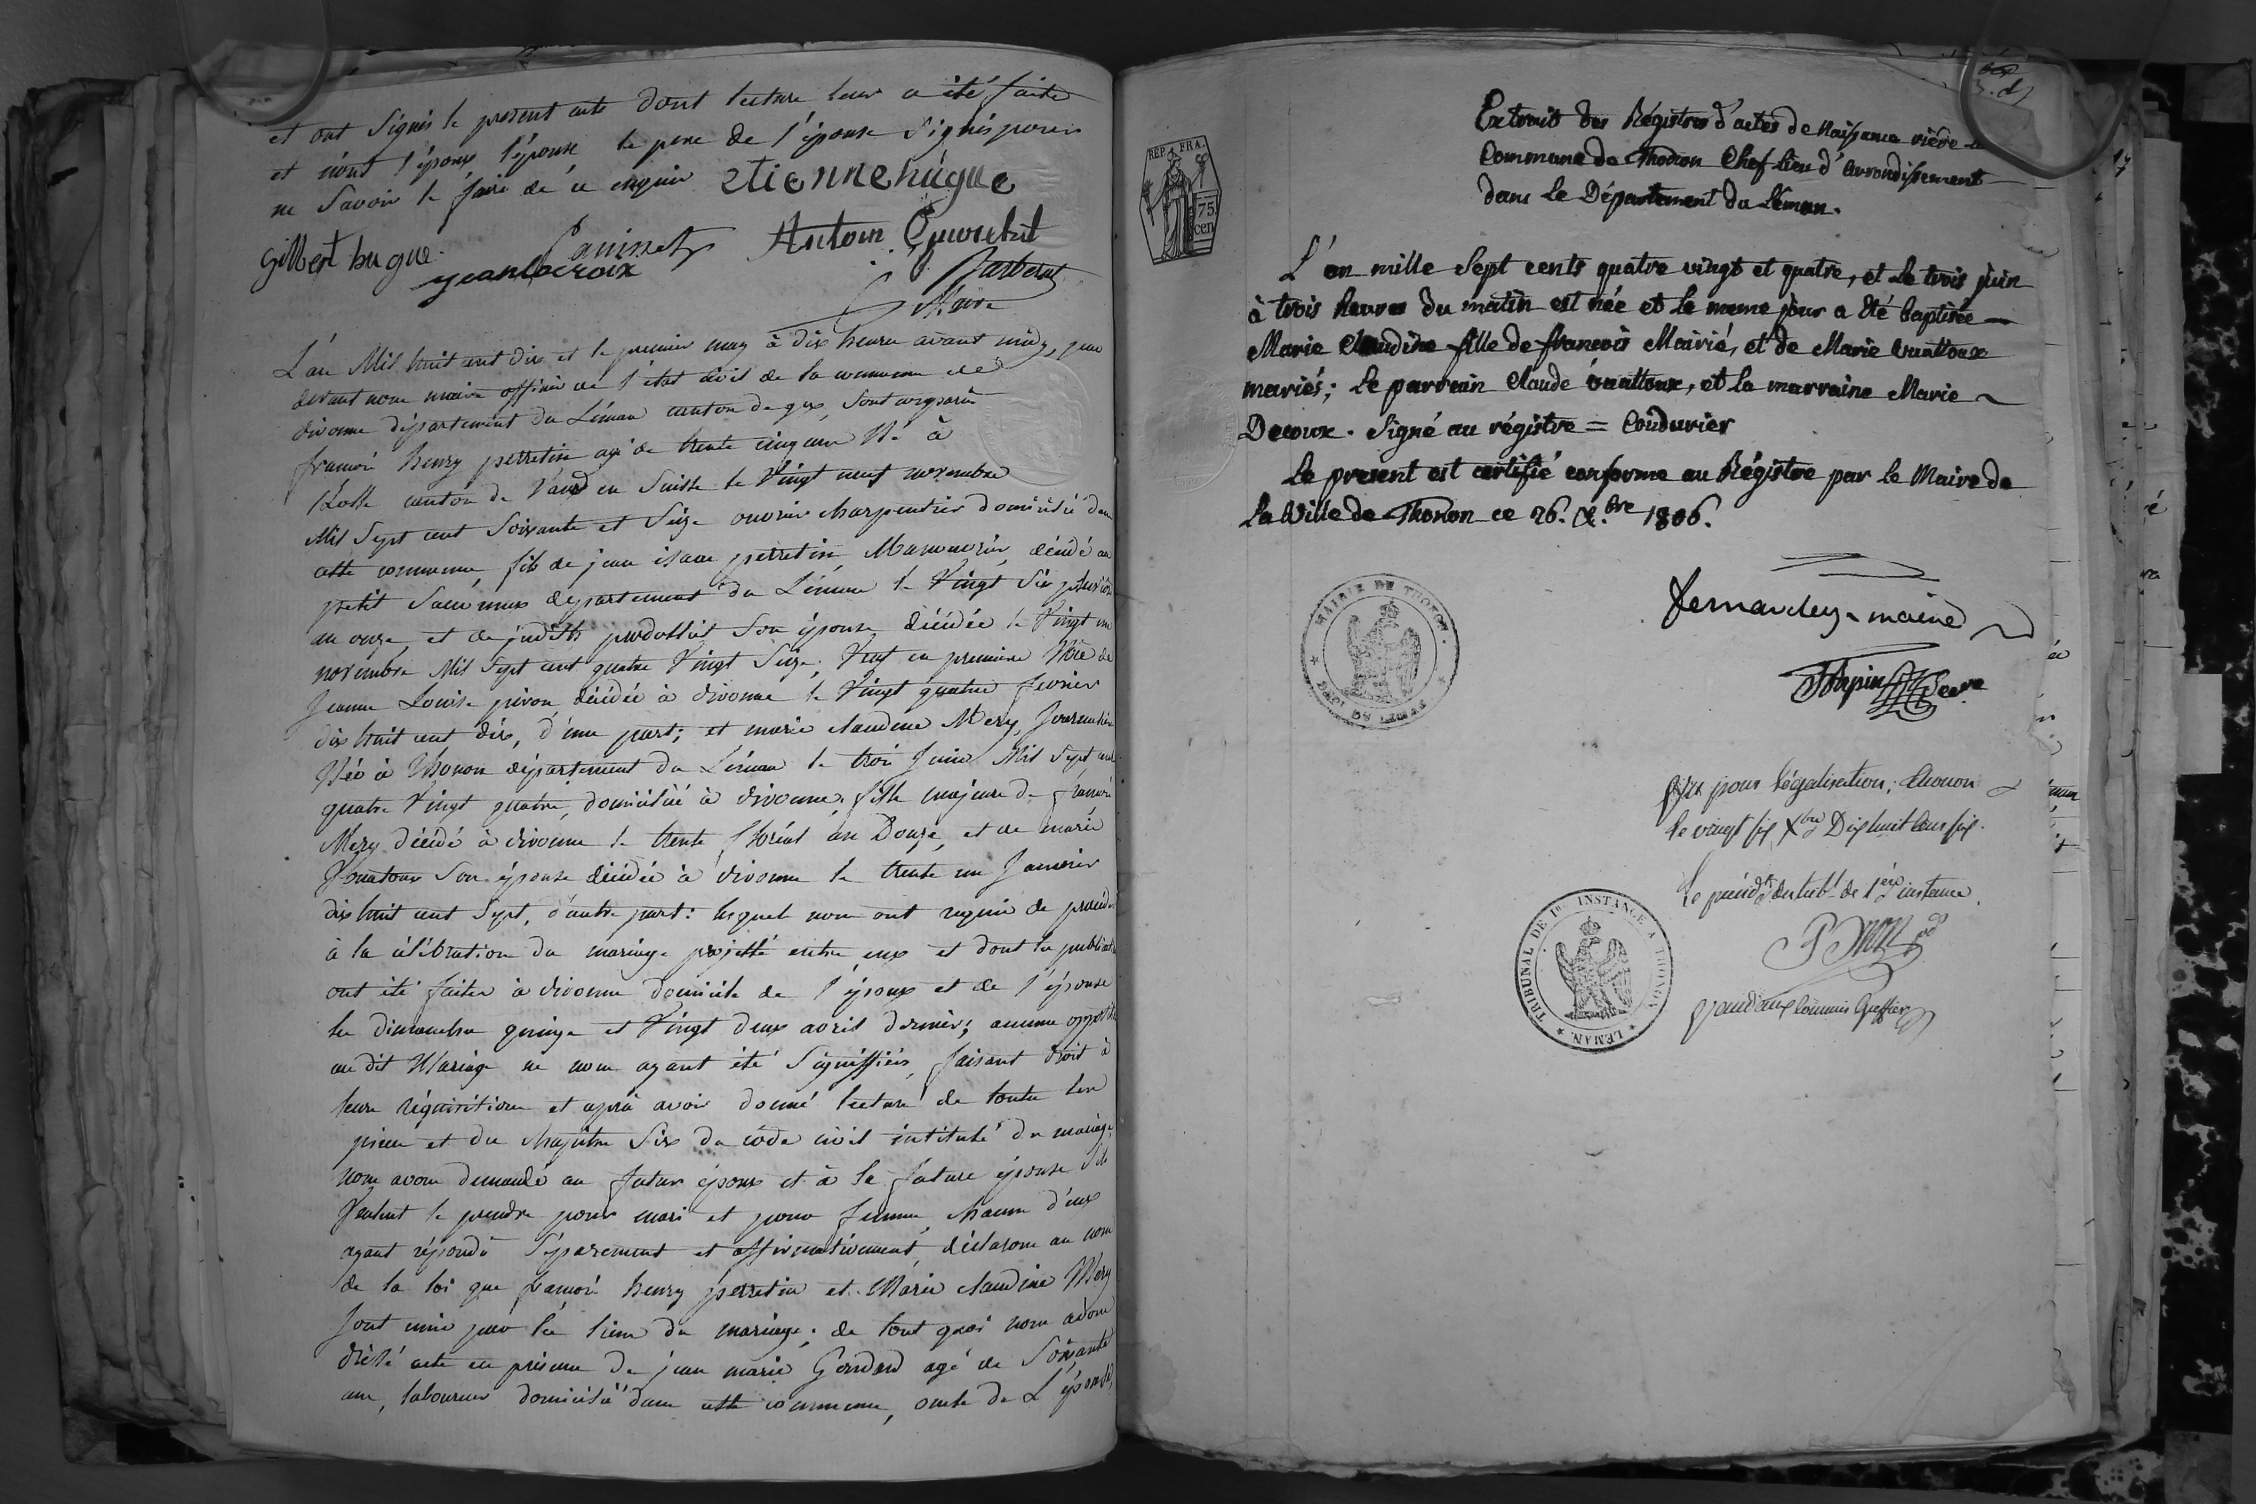 et ont Signés le present acte dont lecture leur a été faite
et n'ont l'époux l'épouse le pere de l'épouse Signés pour
ne Savoir le faire de ce enquis etienne hugue
Gilbert hugue. Antoin
jean lacroix
Maire
L'an Mil huit cent dix et le premier may à dix heures avant midy, par
devant nous maire officier de l'état civil de la commune de
divonne département du Léman canton de gex, Sont comparus
francois henry perretin agé de trente cinq ans Né à
Rolle canton de Vaud en Suisse le Vingt neuf novembre
Mil Sept cent Soixante et Seize ouvrier charpentier domicilié dans
cette commune, fils de jean isaac perretin décédé au
petit département du Léman le Vingt Six
an onze, et de judith Son épouse décédée le Vingt un
novembre Mil Sept cent quatre Vingt Seize; Veuf en premiere Nôce de
Jeanne Louise décédée à divonne le Vingt quatre fevrier
dix huit cent dix, d'une part; et marie claudine Mery,
Née à Thonon département du Léman le trois Juin Mil Sept cent
quatre Vingt quatre, domiciliée à divonne, fille majeure de francois
Mery décédé à divonne le trente floréal an Douze, et de marie
Son épouse décédée à divonne le trente un Janvier
dix huit cent Sept, d'autre part: lesquels nous ont requis de procéder
à la célébration du mariage projetté entre eux et dont les publications
ont été faites à divonne domicile de l'époux et de l'épouse
les dimanches quinze et Vingt deux avril dernier; aucune opposition
au dit Mariage ne nous ayant été Signiffiée, faisant droit à
leurs réquisitions et après avoir donné lecture de toutes les
pieces et du chapitre Six du code civil intitulé du mariage,
nous avons demandé au futur époux et à la future épouse S'ils
Veulent se prendre pour mari et pour femme, chacun d'eux
ayant répondu Séparement et affirmativement, déclarons au nom
de la loi que francois henry perretin et Marie claudine Mery
Sont unis par le lien du mariage; de tout quoi nous avons
dréssé acte en présence de jean marie agé de Soixante
ans, laboureur domicilié dans cette commune, oncle de L'épouse,
REP. FRA.
75
cen
Extrait des Régistres d'actes de Naissance rière la
Commune de Thonon Chef-lieu d'Arrondissement
dans le Département du Léman.
L'an mille Sept cents quatre vingt et quatre, et le trois juin
à trois heures du matin est née et le meme jour a été baptisée
Marie Claudine fille de francois Mairié, et de Marie Vuattoux
mariés; le parrain Claude Vuattoux, et la marraine Marie
Decoux. Signé au régistre = Couduvier
le present est certifié conforme au Régistre par le Maire de
la Ville de Thonon ce 26. X.bre 1806.
MAIRIE DE THONON
DEPT DU LEMAN
maire
Secre
Vu pour légalisation; thonon
le vingt six Xbre Dix huit Cent six.
Le présidt du tribl de 1ere instance.
TRIBUNAL DE Ire INSTANCE A THONON
LEMAN
Commis Greffier